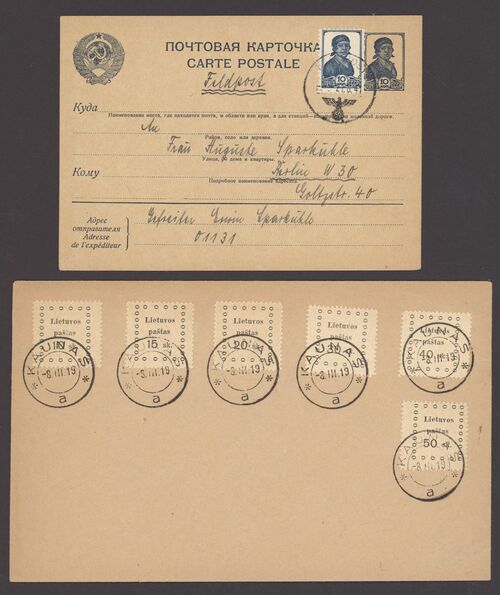 ПОЧТОВАЯ КАРТОЧКА
CARTE POSTALE
Feldpost
10
10
Куда
Наименование места, где находится почта, и области или края, а для станций
железной дороги.
An
Район, село или деревня.
Frau Auguste Sparkühle
Улица, № дома и квартиры.
Кому
Berlin W 30
Подробное наименование адресата
Goltzstr. 40
Адрес
отправителя
Adresse
de l'expéditeur
Gefreiter Erwin Sparkühle
01131
Lietuvos
paštas
Lietuvos
paštas
15 sk.
Lietuvos
paštas
20
Lietuvos
paštas
30
Lietuvos
paštas
40
KAUNAS
-8.III.19
a
KAUNAS
-8.III.19
a
KAUNAS
-8.III.19
a
KAUNAS
-8.III.19
a
KAUNAS
-8.III.19
a
Lietuvos
paštas
50
KAUNAS
-8.III.19
a